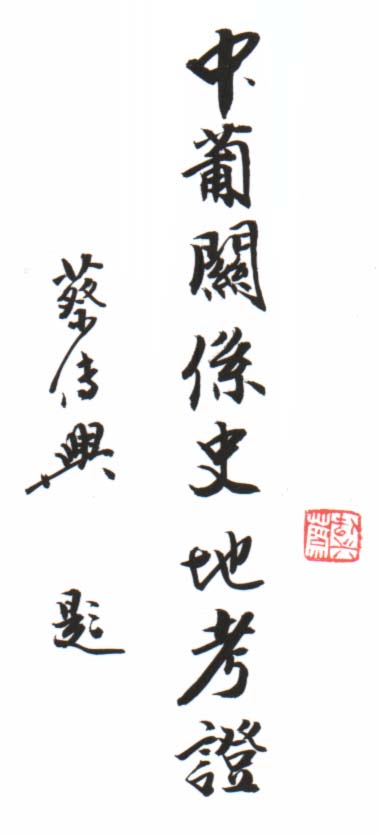 中葡關係史地考證
蔡傳興 題